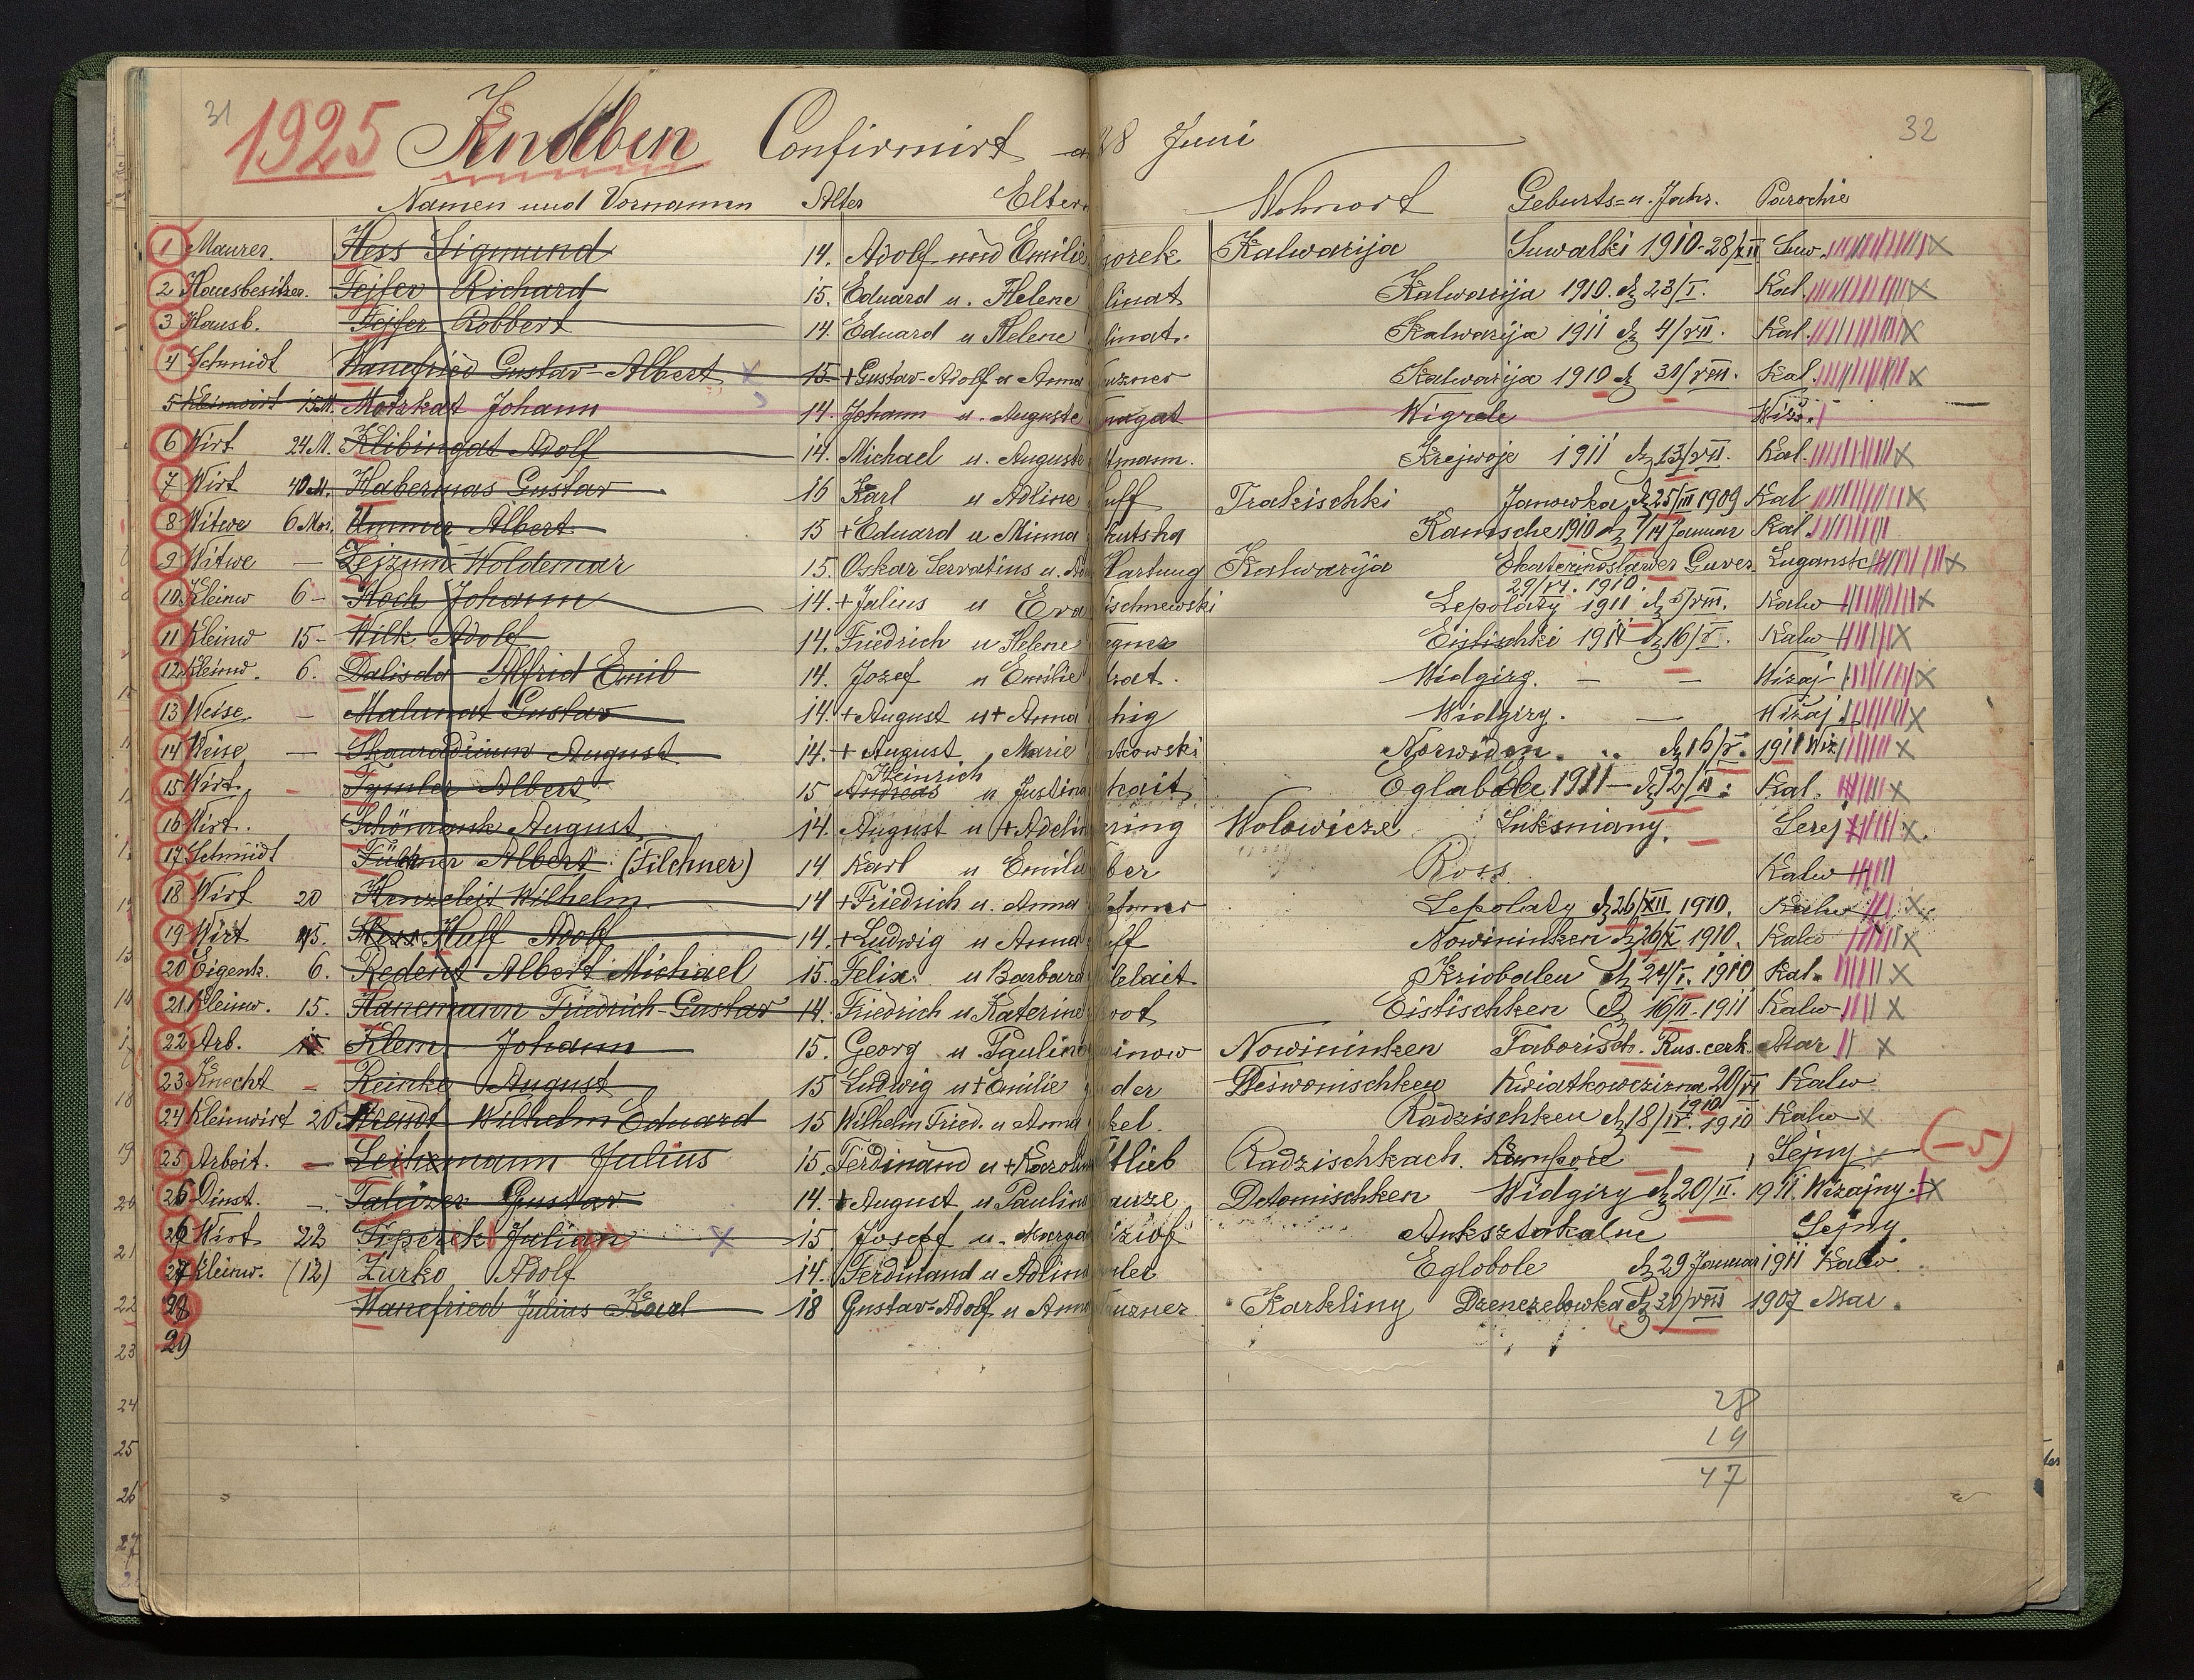 31 1925 Knaben Confirmirt 28 Juni 32
Namen und Vornamen Alter Eltern Wohnort Geburts=u. Jahr. Parochie
1 Maurer. Hess Sigmund 14. Adolf und Emilie Kalwarija Suwalki 1910-28/XII Suw.
2 Hausbesitzer. Fejfer Richard 15. Eduard u. Helene linat Kalwarija 1910. d. 23/I. Kal.
3 Hausb. Fejfer Robbert 14. Eduard u Helene linat. Kalwarija 1911 d. 4/VII. Kal.
4 Schmidt Wanefried Gustav-Albert 15 +Gustav-Adolf u Anna uzner Kalwarija 1910 d. 30/VIII. Kal.
5 Kleinwirt 15M. Motzkat Johann 14. Johann u. Auguste nagat Wigrele Wiż.
6 Wirt 24M. Klibingat Adolf 14. Michael u. Auguste tmann. Krejwoje 1911 d. 13/VII. Kal.
7 Wirt 40M. Habermas Gustav 16 Karl u Adline uff Trakischki Janowka d. 25/III 1909 Kal
8 Witwe 6 Mor. Ummer Albert 15 +Eduard u Minna kutska Kamsche 1910 d. 1/14 Januar Kal.
9 Witwe — Zejzum Woldemar 15. Oskar Servatius u. Hartung Kalwarija Ekaterinoslawer Guver. Lugansk
29/VI. 1910.
10 Kleinw 6- Koch Johann 14. +Julius u Eva ischnewski Lepolaty 1911 d. 5/VIII. Kalw
11 Kleinw 15- Wilk Adolf 14. Friedrich u Helene egner Eistischki 1911 d. 16/V. Kalw
12 Kleinw. 6. Dalisda Alfrid Emil 14. Jozef u Emilie trat. Widgirg. — — Wizaj
13 Weise — Malunat Gustav 14. +August u+Anna hig Widgiry. — Wizaj
14 Weise — Skauradzium August 14. + August, Marie tkowski Norwiden. d. 16/V. 1911 Wiz
Heinrich
15 Wirt. - Tymler Albert 15 Andreas u Justina hait Eglabole 1911 — d. 12/II. Kal.
16 Wirt. Schönrank August 14. August u +Adelin ring Wolowicze Luksniany. Serej
17 Schmidt Fülkner Albert (Filchner) 14 Karl u Emilie ber Ross Kalw
18 Wirt 20 Henzeleit Wilhelm 14 +Friedrich u. Anna Lepolaty d. 26/XII 1910. Kalw
19 Wirt 45. Hess Huff Adolf 14. +Ludwig u Anna uff Nowininken d. 26/X 1910. Kalw
20 Eigent. 6. Redent Albert Michael 15. Felix u Barbara lelait Kriobalen d. 24/I. 1910 Kal.
21 Kleinw. 15. Hanemann Friedrich-Gustav 14. Friedrich u Katerine oot Eistischken d. 16/II. 1911 Kalw
22 Arb. Klem Johann 15. Georg u. Pauline inow Nowininken Taborisch. Rus. cerk. Mar
23 Knecht - Reinke August 15 Ludwig u+Emilie der Deiwonischken Kwiatkowczizna 20/VI Kalw
1910
24 Kleinwirt 20 Wendt Wilhelm Eduard 15 Wilhelm Fried. u Anna kel. Radzischken d. 18/IV. 1910 Kalw
25 Arbeit. — Leihmann Julius 15. Ferdinand u +Karolin tlieb Radzischkach. Sejny (-5)
26 Dinst. -. Taluzer Gustav 14. + August u Pauline auze Detomischken Widgiry d. 20/II. 1911. Wizajny.
26 Wirt 22 Fiperek Julian 15. Josef u. Marga iziof Auksztakalne Sejny.
27 Kleinw. (12) Zurko Adolf 14. Ferdinand u Adline mler Eglobole d. 29 Januar 1911 Kalw.
28 Wanefried Julius Karl 18 Gustav-Adolf u Anna uzner Karkliny Dzenczelowka d. 30/VIII 1907 Mar.
29
28
19
47